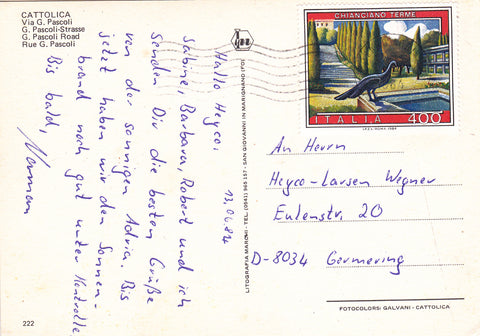 CATTOLICA
Via G. Pascoli
G. Pascoli-Strasse
G. Pascoli Road
Rue G. Pascoli
13.06.84
Hallo Heyco,
Sabine, Barbara, Robert und ich
senden Dir die besten Grüße
von der sonnigen Adria. Bis
jetzt haben wir den Sonnen-
brand noch gut unter Kontrolle
Bis bald,
Norman
222
LITOGRAFIA MARCHI - TEL. (0541) 955 157 - SAN GIOVANNI IN MARIGNANO (FO)
CHIANCIANO TERME
ITALIA 400
I.P.Z.S. ROMA 1984
An Herrn
Heyco-Larsen Wegner
Eulenstr. 20
D-8034 Germering
FOTOCOLORS: GALVANI - CATTOLICA